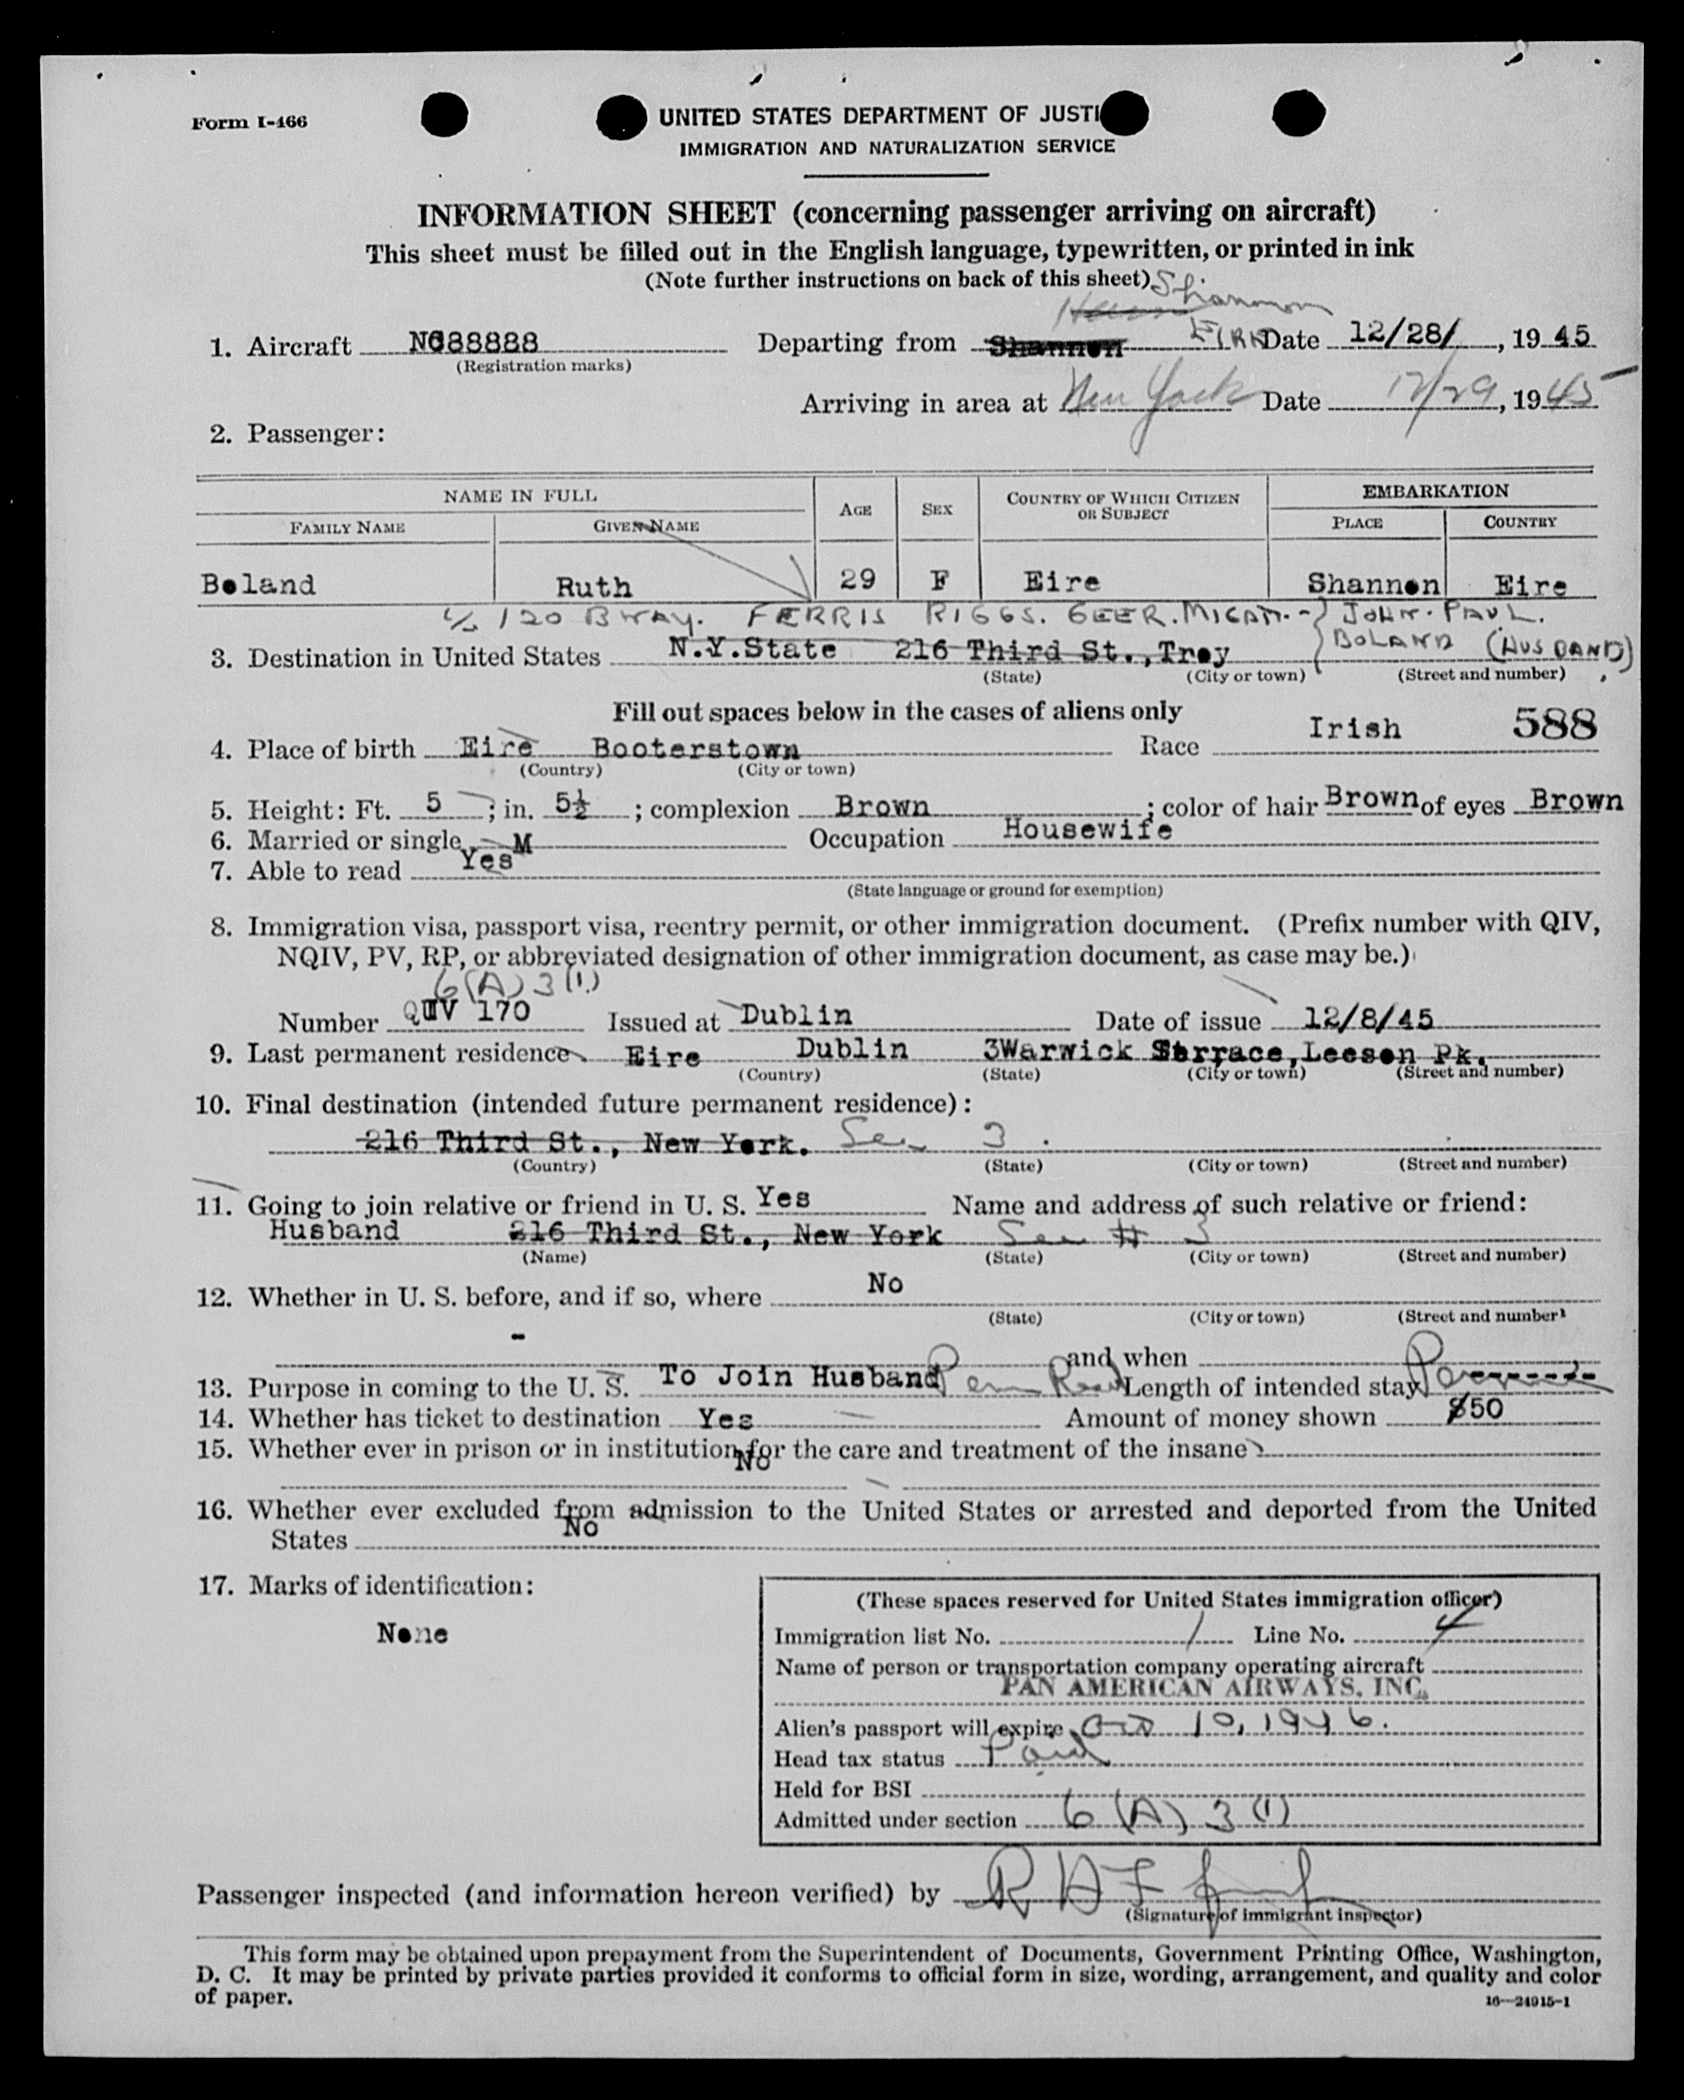 Form I-466
UNITED STATES DEPARTMENT OF JUSTI
IMMIGRATION AND NATURALIZATION SERVICE
INFORMATION SHEET (concerning passenger arriving on aircraft)
This sheet must be filled out in the English language, typewritten, or printed in ink
(Note further instructions on back of this sheet)
Shannon
1. Aircraft NC88888 Departing from Shannon EIRE Date 12/28/, 1945
(Registration marks)
Arriving in area at New York Date 12/29, 1945
2. Passenger:
NAME IN FULL AGE SEX COUNTRY OF WHICH CITIZEN OR SUBJECT EMBARKATION
FAMILY NAME GIVEN NAME PLACE COUNTRY
Boland Ruth 29 F Eire Shannon Eire
c/o 120 BWAY. FERRIS RIGGS. GEER. JOHN. PAUL.
BOLAND (HUSBAND)
3. Destination in United States N.Y.State 216 Third St.,Troy
(State) (City or town) (Street and number)
Fill out spaces below in the cases of aliens only
588
4. Place of birth Eire Booterstown Race Irish
(Country) (City or town)
5. Height: Ft. 5; in. 5½; complexion Brown; color of hair Brown of eyes Brown
6. Married or single M Occupation Housewife
7. Able to read Yes
(State language or ground for exemption)
8. Immigration visa, passport visa, reentry permit, or other immigration document. (Prefix number with QIV,
NQIV, PV, RP, or abbreviated designation of other immigration document, as case may be.)
6(A)3(1)
Number QIV 170 Issued at Dublin Date of issue 12/8/45
9. Last permanent residence Eire Dublin 3Warwick Terrace,Leeson Pk.
(Country) (State) (City or town) (Street and number)
10. Final destination (intended future permanent residence):
216 Third St., New York. See 3.
(Country) (State) (City or town) (Street and number)
11. Going to join relative or friend in U. S. Yes Name and address of such relative or friend:
Husband 216 Third St., New York See # 3
(Name) (State) (City or town) (Street and number)
12. Whether in U. S. before, and if so, where No
(State) (City or town) (Street and number)
- and when
13. Purpose in coming to the U. S. To Join Husband Perm Length of intended stay
14. Whether has ticket to destination Yes Amount of money shown $50
15. Whether ever in prison or in institution for the care and treatment of the insane
No
16. Whether ever excluded from admission to the United States or arrested and deported from the United
States No
17. Marks of identification:
None
(These spaces reserved for United States immigration officer)
Immigration list No. 1 Line No. 4
Name of person or transportation company operating aircraft
PAN AMERICAN AIRWAYS, INC.
Alien's passport will expire Oct 10, 1946.
Head tax status Paid
Held for BSI
Admitted under section 6(A) 3(1)
Passenger inspected (and information hereon verified) by
(Signature of immigrant inspector)
This form may be obtained upon prepayment from the Superintendent of Documents, Government Printing Office, Washington,
D. C. It may be printed by private parties provided it conforms to official form in size, wording, arrangement, and quality and color
of paper.
16—24915-1